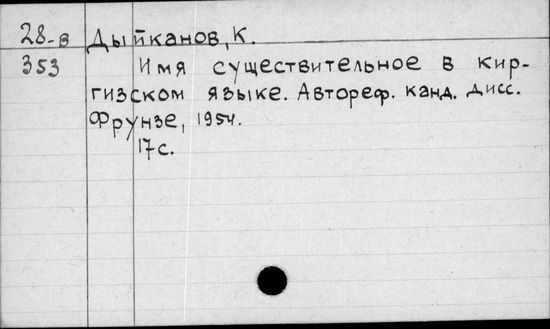 28-в Дыйканов, К.
353 Имя существительное в кир-
гизском языке. Автореф. канд. дисс.
Фрунзе, 1954.
17с.